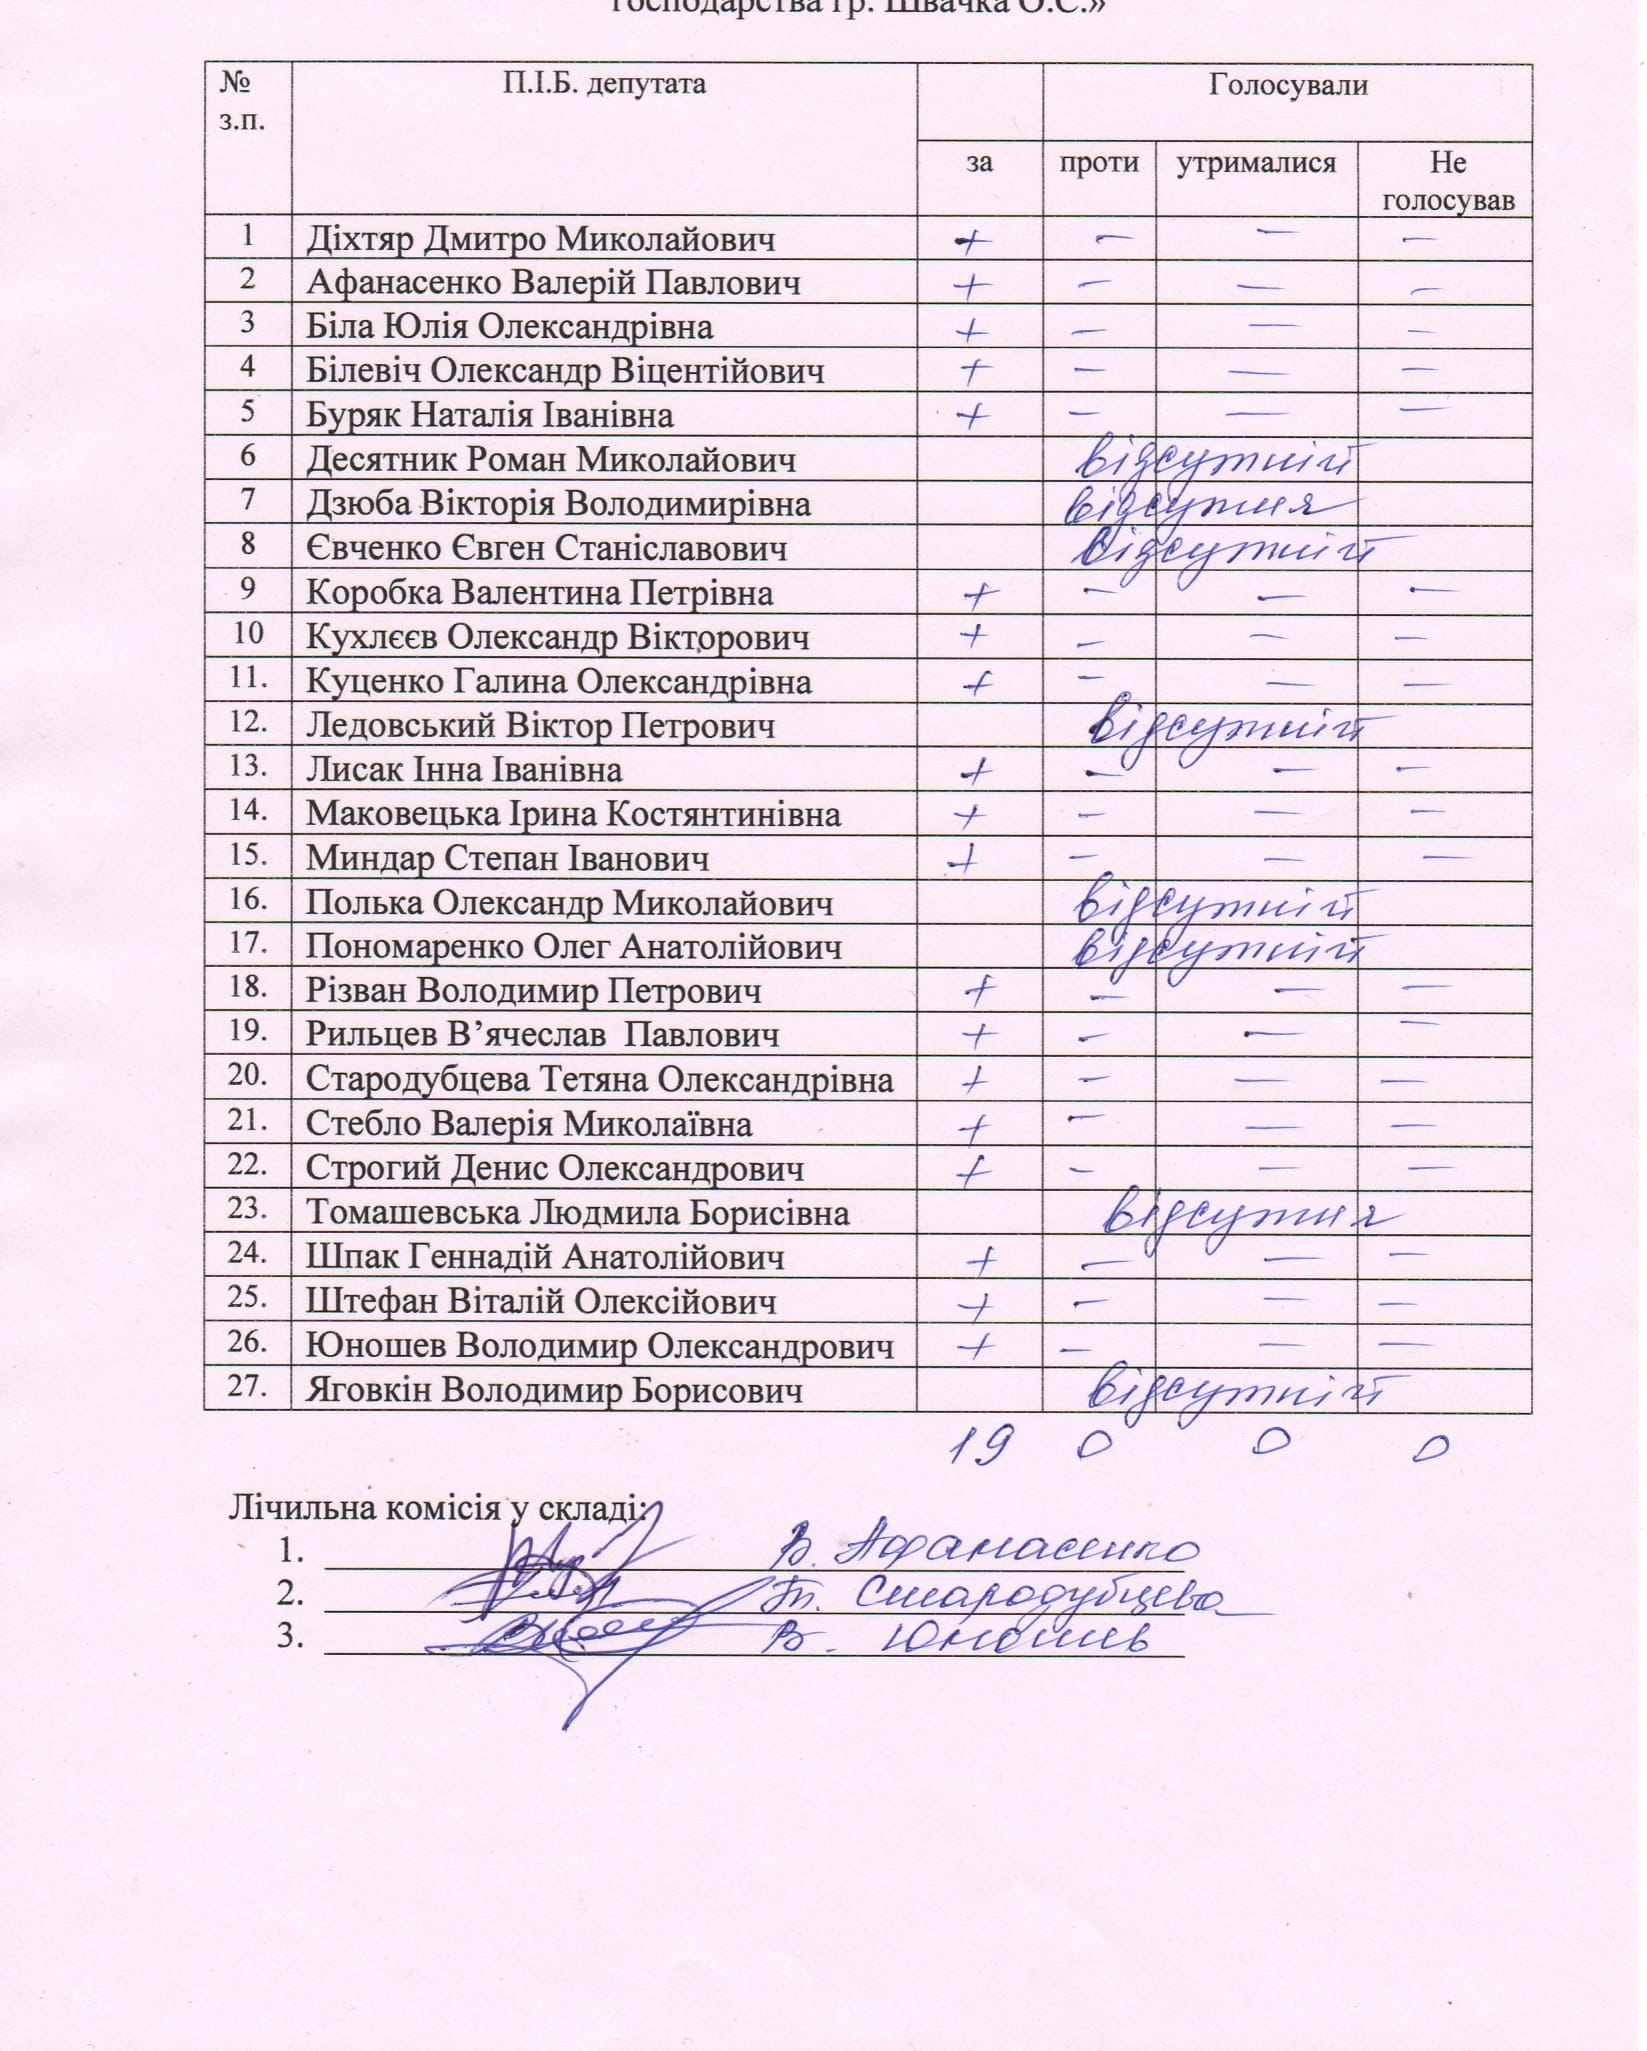 господарства гр. Швачка О.С.»
№ з.п. П.І.Б. депутата Голосували
за проти утрималися Не голосував
1 Діхтяр Дмитро Миколайович + – – –
2 Афанасенко Валерій Павлович + – – –
3 Біла Юлія Олександрівна + – – –
4 Білевіч Олександр Віцентійович + – – –
5 Буряк Наталія Іванівна + – – –
6 Десятник Роман Миколайович відсутній
7 Дзюба Вікторія Володимирівна відсутня
8 Євченко Євген Станіславович відсутній
9 Коробка Валентина Петрівна + – – –
10 Кухлєєв Олександр Вікторович + – – –
11. Куценко Галина Олександрівна + – – –
12. Ледовський Віктор Петрович відсутній
13. Лисак Інна Іванівна + – – –
14. Маковецька Ірина Костянтинівна + – – –
15. Миндар Степан Іванович + – – –
16. Полька Олександр Миколайович відсутній
17. Пономаренко Олег Анатолійович відсутній
18. Різван Володимир Петрович + – – –
19. Рильцев В’ячеслав Павлович + – – –
20. Стародубцева Тетяна Олександрівна + – – –
21. Стебло Валерія Миколаївна + – – –
22. Строгий Денис Олександрович + – – –
23. Томашевська Людмила Борисівна відсутня
24. Шпак Геннадій Анатолійович + – – –
25. Штефан Віталій Олексійович + – – –
26. Юношев Володимир Олександрович + – – –
27. Яговкін Володимир Борисович відсутній
19 0 0 0
Лічильна комісія у складі:
1. В. Афанасенко
2. Т. Стародубцева
3. В. Юношев